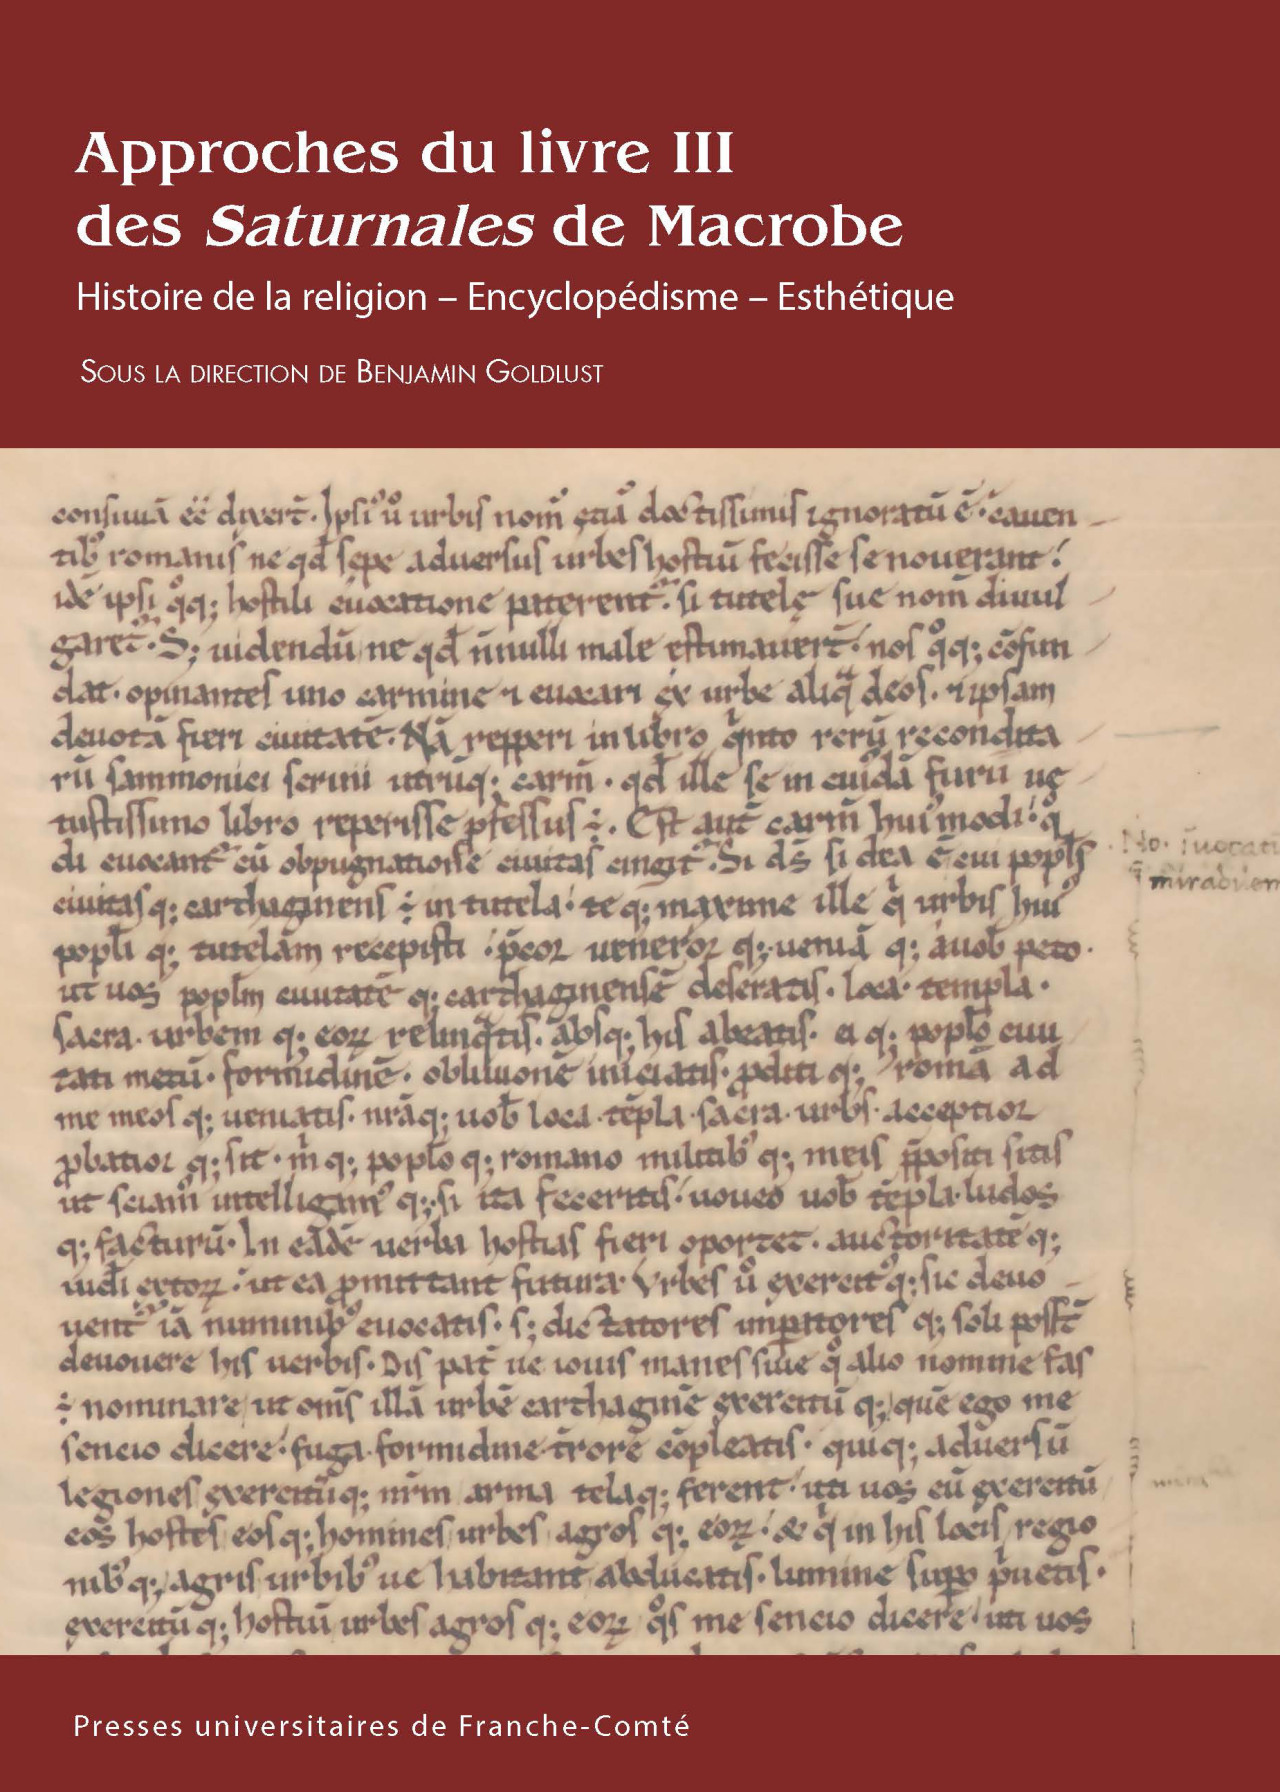 Approches du livre III
des Saturnales de Macrobe
Histoire de la religion – Encyclopédisme – Esthétique
Sous la direction de Benjamin Goldlust
consiuiā eē̄ dixert̄. Ipsiꝰ ů urbis nom̄ etiā doctissimis ignoratū ē. cauen
tibꝰ romanis ne qđ sepe aduersus urbes hostiū fecisse se nouerant
idē ipsi qͦq; hostili euocatione paterent᷑. si tutelę sue nom̄ diuul
garet᷑. S; uidendū ne qđ n̄nulli male estimauert̄. nos qͦq; cōfun
dat. opinantes uno carmine ⁊ euocari ex urbe aliq̄ deos. ⁊ ipsam
deuotā fieri ciuitatē. Nā repperi in libro qͥnto rerū recondita
rū sammonici sereni utrūq; carm̄. qđ ille se in cuiꝰdā furii ue
tustissimo libro reperisse ꝓfessus ÷. Est aut̄ carm̄ huiꝰmodi qͦ
di euocant᷑ cū obpugnatione ciuitas cingit᷑. Si ds̄ si dea ē cui popl̄s
ciuitasq; carthaginens̄ ÷ in tutela. te q; maxime ille qͥ urbis huiꝰ
popl̄i q; tutelam recepisti. p̄cor ueneror q; ueniā q; a uob̄ peto.
ut uos popl̄m ciuitatē q; carthaginensē deseratis. loca. templa.
sacra. urbem q; eoꝝ relinqͣtis. absq; his abeatis. ei q; popl̄o ciui
tati metū. formidinē. obliuionē iniciatis. ꝓditi q; romā ad
me meos q; ueniatis. nr̄aq; uob̄ loca. tēpla. sacra. urbs. acceptior
ꝓbatior q; sit. m̄ q; popl̄o q; romano militibꝰ q; meis p̄positi sitis
ut sciamꝰ intelligamꝰ q; si ita feceritis. uoueo uob̄ tēpla. ludos
q; facturū. In eādē uerba hostias fieri oportet. auctoritatē q;
uidi extoꝝ. ut ea ꝓmittant futura. Vrbes ů exercitꝰ q; sic deuo
uent᷑ iā numinibꝰ euocatis. s; dictatores imp̄atores q; soli poss̄t
deuouere his uerbis. Dis pat̄ ue iouis manes siue qͦ alio nomine fas
÷ nominare ut oms̄ illā urbē carthaginē exercitū q; quē ego me
sencio dicere. fuga. formidine. t̄rorē cōpleatis. quiq; aduersū
legiones exercitūq; nr̄m arma telaq; ferent. uti uos eū exercitū
eos hostes eosq; homines urbes agros q; eoꝝ. & qͥ in his locis, regio
nibꝰ q; agris urbibꝰ ue habitant abducatis. lumine supo p̄uetis.
exercitū q; hostiū urbes agros q; eoꝝ qͦs me sencio dicere. uti uos
Presses universitaires de Franche-Comté